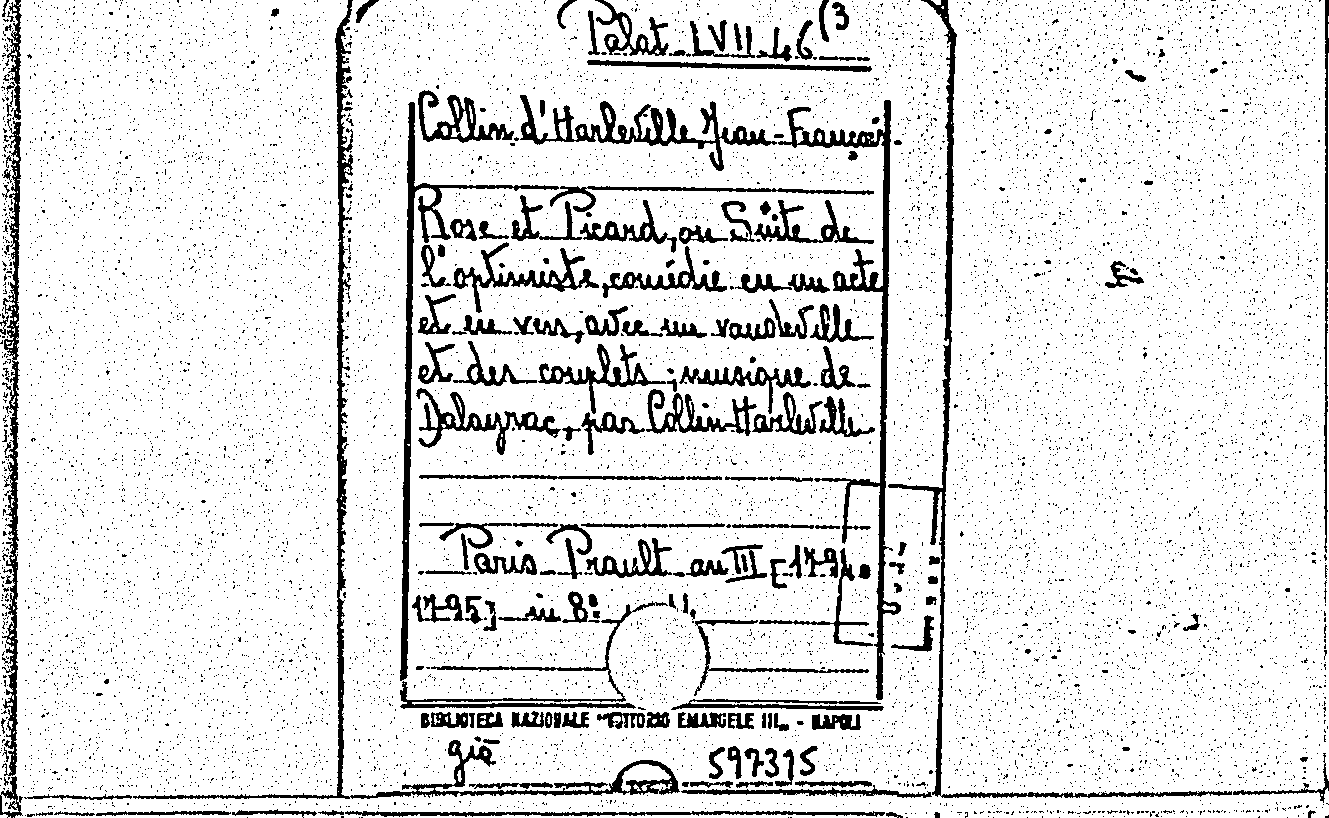 Palat LVII 46 (3
Collin d'Harleville, Jean-François.
Rose et Picard, ou Suite de
l'optimiste, comédie en un acte
et en vers, avec un vaudeville
et des couplets; musique de
Dalayrac, par Collin-Harleville
Paris Prault an III [1794-
1795] in 8º
BIBLIOTECA NAZIONALE "VITTORIO EMANUELE III" - NAPOLI
già 597315